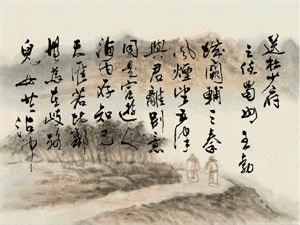 送杜少府
之任蜀州 王勃
城阙辅三秦
风烟望五津
与君离别意
同是宦游人
海内存知己
天涯若比邻
无为在歧路
儿女共沾巾